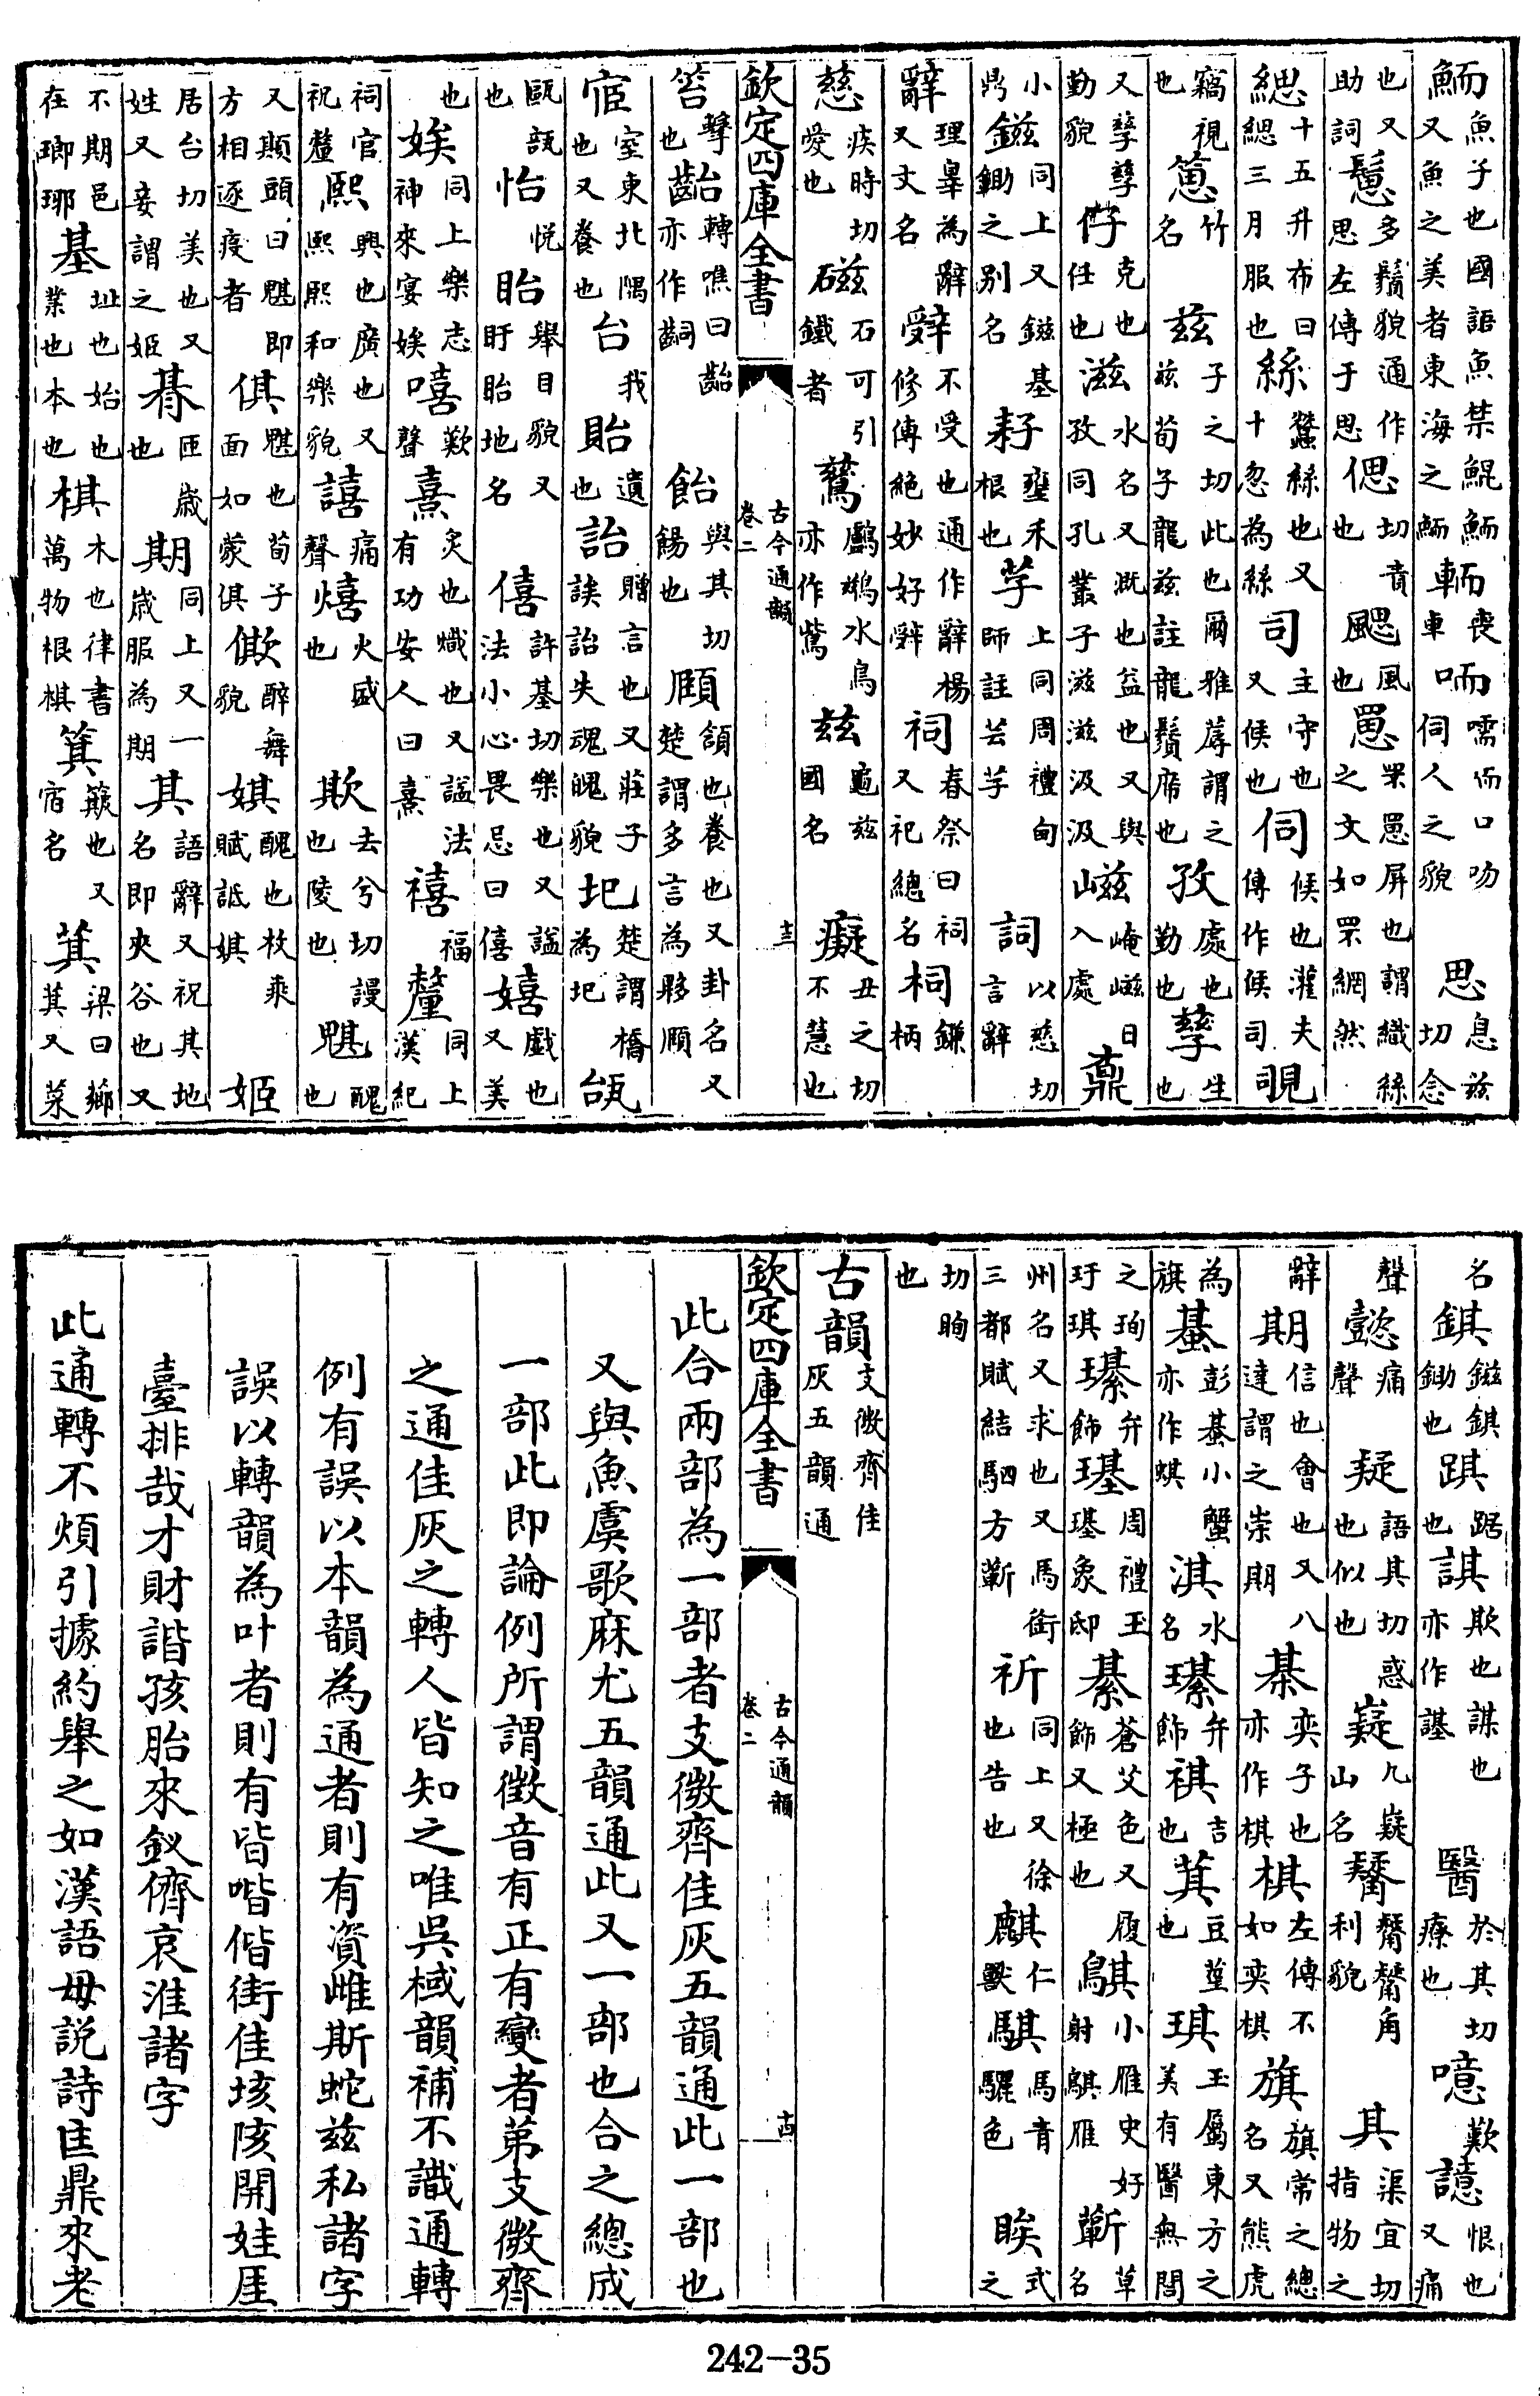 鮞魚子也國語魚禁鯤鮞又魚之美者東海之鮞輀喪車咡嚅而口吻伺人之貌思息兹切念
也又助詞多鬚貌通作思左傳于思偲切責也颸風也罳罘罳屏也謂織絲之文如罘網然
緦十五升布曰緦三月服也絲蠶絲也又十忽為絲司主守也又候也伺候也灌夫傳作候司覗
竊視也竹名兹子之切此也爾雅蓐謂之兹荀子龍兹註龍鬚席也孜處也勤也孳生也
又孳孳勤貌仔克也任也滋水名又溉也益也又與孜同孔叢子滋滋汲汲嵫崦嵫日入處鼒
小鼎鎡同上又鎡基鋤之别名耔壅禾根也芓上同周禮甸師註芸芓詞以慈切言辭
辭理辠為辭又丈名辤不受也通作辭楊修傳絶妙好辤祠春祭曰祠又祀總名柌鎌柄
慈疾時切愛也磁石可引鐵者鶿鸕鷀水鳥亦作鶿兹龜兹國名癡丑之切不慧也
欽定四庫全書
古今通韻
卷二
十三
笞擊也齝轉噍曰齝亦作飴與其切餳也頤頷也養也又卦名又楚謂多言為夥頤
宧室東北隅也又養也台我貽遺也詒贈言也又莊子誒詒失魂魄貌圯楚謂橋為圯瓵
甌瓿也怡悦眙舉目貌又盱眙地名僖許基切樂也又謚法小心畏忌曰僖嬉戲也又美
也娭同上樂志神來宴娭嘻歎聲熹炙也熾也又謚法有功安人曰熹禧福釐同上漢紀
祠官祝釐熙興也廣也又熙熙和樂貌譆痛聲熺火盛也欺去兮切謾也陵也䫏醜也
又顒頭曰䫏即方相逐疫者倛䫏也荀子面如蒙倛僛醉舞貌娸醜也枚乘賦詆娸姬
居台切美也又姓又妾謂之姬朞匝歲也期同上又一歲服為期其語辭又祝其地名即夾谷也又
不期邑在瑯琊基址也始也業也本也棋木也律書萬物根棋箕簸也又宿名萁梁曰薌萁又菜
名錤鎡錤鋤也踑踞也諆欺也謀也亦作諅醫於其切療也噫歎譩恨也又痛
聲懿痛聲疑語其切惑也似也嶷九嶷山名觺觺觺角利貌其渠宜切指物之
辭期信也會也又八達謂之崇期棊奕子也亦作棋棋左傳不如奕棋旗旗常之總名又熊虎
為旗蟇彭蜞小蟹亦作蜞淇水名璂弁飾祺吉也萁豆莖也琪玉屬東方之美有醫無閭
之珣玗琪璂弁飾璂周禮玉璂象邸綦蒼艾色又履飾又極也鶀小雁史好射鶀雁蘄草名
州名又求也又馬銜三都賦結駟方蘄祈同上又徐也告也麒仁獸騏馬青驪色眵式之
切眴也
古韻支微齊佳灰五韻通
欽定四庫全書
古今通韻
卷二
十四
此合兩部為一部者支微齊佳灰五韻通此一部也
又與魚虞歌麻尤五韻通此又一部也合之總成
一部此即論例所謂徵音有正有變者第支微齊
之通佳灰之轉人皆知之唯吳棫韻補不識通轉
例有誤以本韻為通者則有資雌斯蛇兹私諸字
誤以轉韻為叶者則有皆喈偕街佳垓陔開娃厓
臺排哉才財諧孩胎來釵儕哀淮諸字
此通轉不煩引據約舉之如漢語毋説詩匡鼎來老
242—35